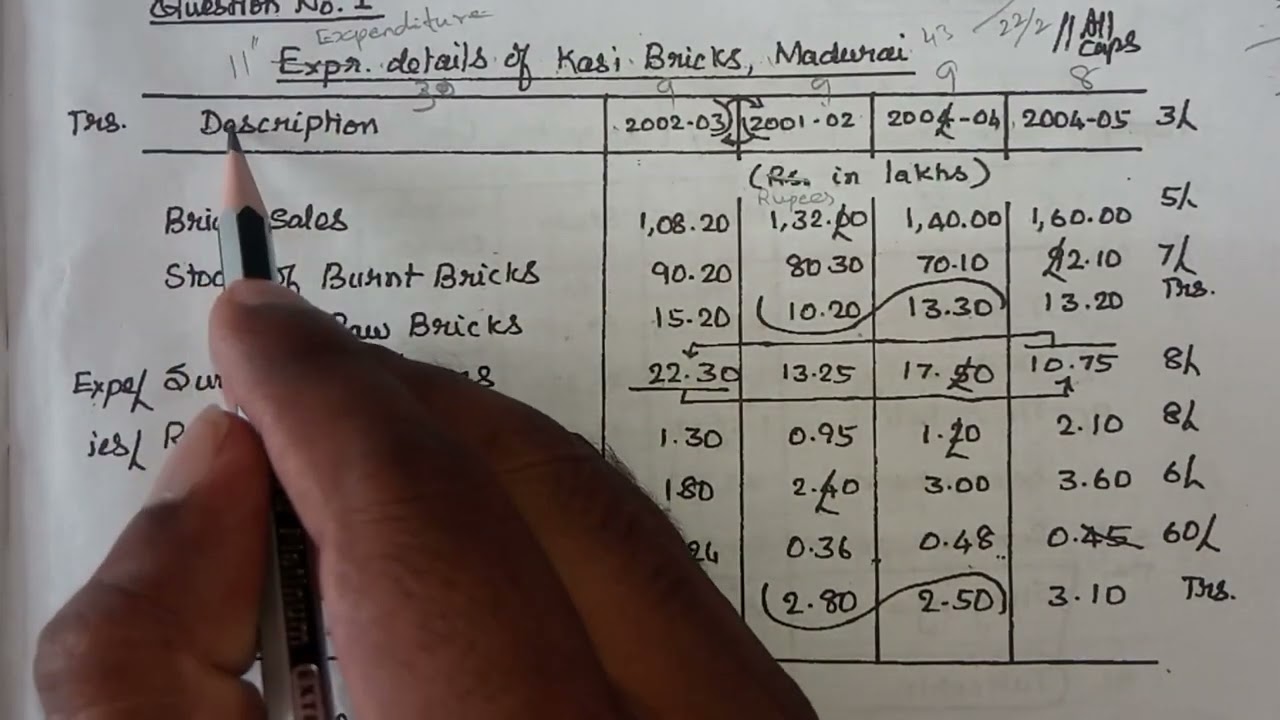 Question No. 1
Expenditure
11" Expr. details of Kasi Bricks, Madurai 43 22/2 // All caps
39 9 9 9 8
Trs. Description 2002-03 2001-02 2004-04 2004-05 3/
(Rs. in lakhs)
Rupees
5/
Sales 1,08.20 1,32.00 1,40.00 1,60.00
Burnt Bricks 90.20 80.30 70.10 92.10 7/
Bricks 15.20 10.20 13.30 13.20 Trs.
Expe/ 22.30 13.25 17.50 10.75 8/
ies/ 1.30 0.95 1.20 2.10 8/
1.80 2.40 3.00 3.60 6/
0.36 0.48 0.45 60/
2.80 2.50 3.10 Trs.
Platinum